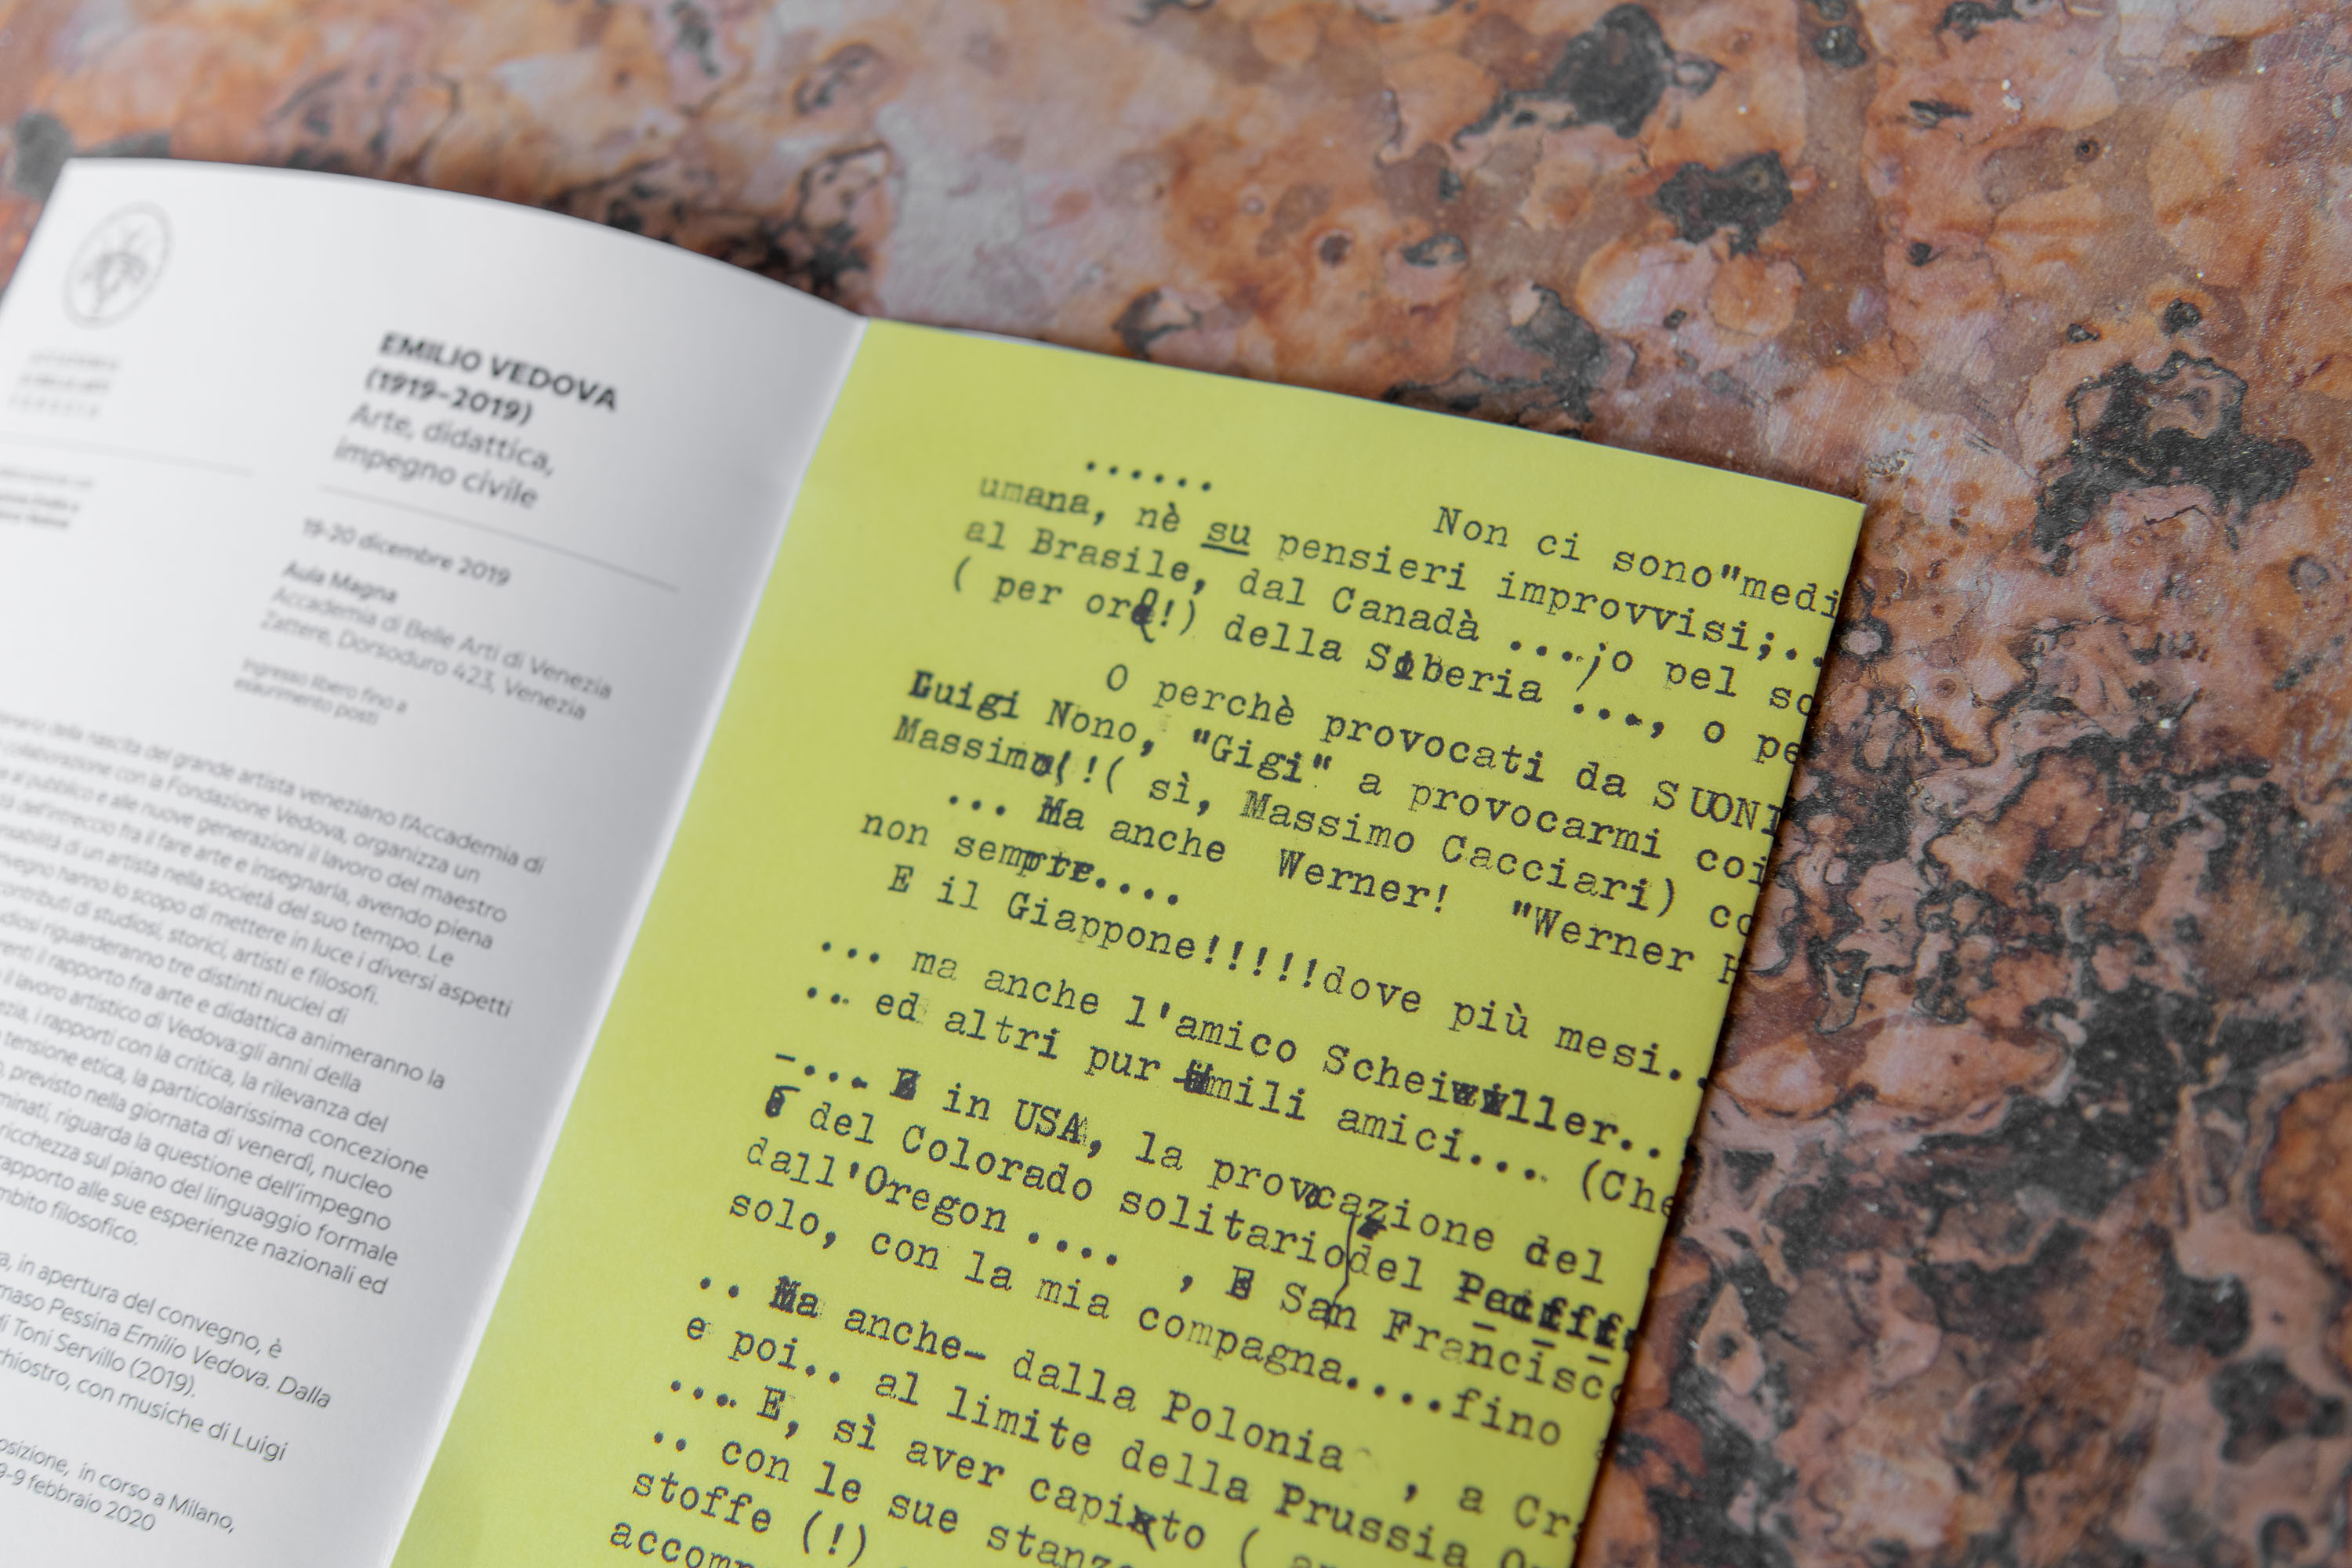 EMILIO VEDOVA
(1919–2019)
Arte, didattica,
impegno civile
19-20 dicembre 2019
Aula Magna
Accademia di Belle Arti di Venezia
Zattere, Dorsoduro 423, Venezia
Ingresso libero fino a
esaurimento posti
della nascita del grande artista veneziano l'Accademia di
collaborazione con la Fondazione Vedova, organizza un
al pubblico e alle nuove generazioni il lavoro del maestro
dell'intreccio fra il fare arte e insegnarla, avendo piena
di un artista nella società del suo tempo. Le
hanno lo scopo di mettere in luce i diversi aspetti
contributi di studiosi, storici, artisti e filosofi.
riguarderanno tre distinti nuclei di
il rapporto fra arte e didattica animeranno la
il lavoro artistico di Vedova:gli anni della
i rapporti con la critica, la rilevanza del
tensione etica, la particolarissima concezione
previsto nella giornata di venerdì, nucleo
riguarda la questione dell'impegno
ricchezza sul piano del linguaggio formale
rapporto alle sue esperienze nazionali ed
filosofico.
in apertura del convegno, è
Pessina Emilio Vedova. Dalla
di Toni Servillo (2019).
con musiche di Luigi
in corso a Milano,
9 febbraio 2020
......
Non ci sono"medi
umana, nè su pensieri improvvisi;..
al Brasile, dal Canadà ....;o pel so
( per ora!) della Siberia ..., o pe
O perchè provocati da SUONI
Luigi Nono, "Gigi" a provocarmi coi
Massimo(!( sì, Massimo Cacciari) co
... Ma anche Werner! "Werner
non sempre....
E il Giappone!!!!!dove più mesi..
... ma anche l'amico Scheiwiller..
.. ed altri pur umili amici.... (Che
-.... E in USA, la provocazione del
del Colorado solitariodel
dall'Oregon .... , E San Francisco
solo, con la mia compagna....fino
.. Ma anche- dalla Polonia , a Cr
e poi.. al limite della Prussia
.... E, sì aver capito (
.. con le sue
stoffe (!)